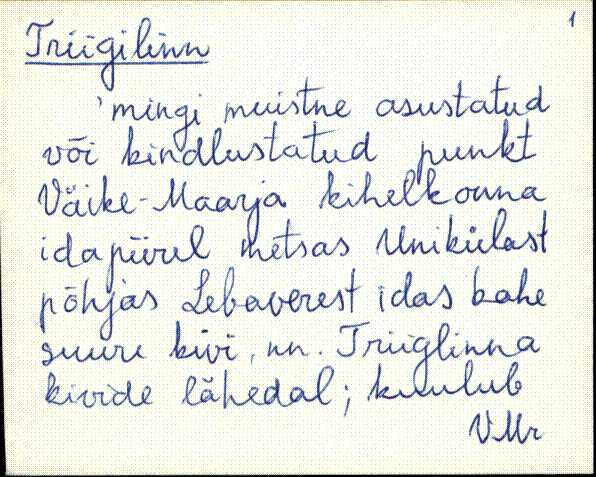 1
Triigilinn
'mingi muistne asustatud
või kindlustatud punkt
Väike-Maarja kihelkonna
idapiirel metsas Unikülast
põhjas Lebaverest idas kahe
suure kivi, nn. Triiglinna
kivide lähedal; kuulub
VMr